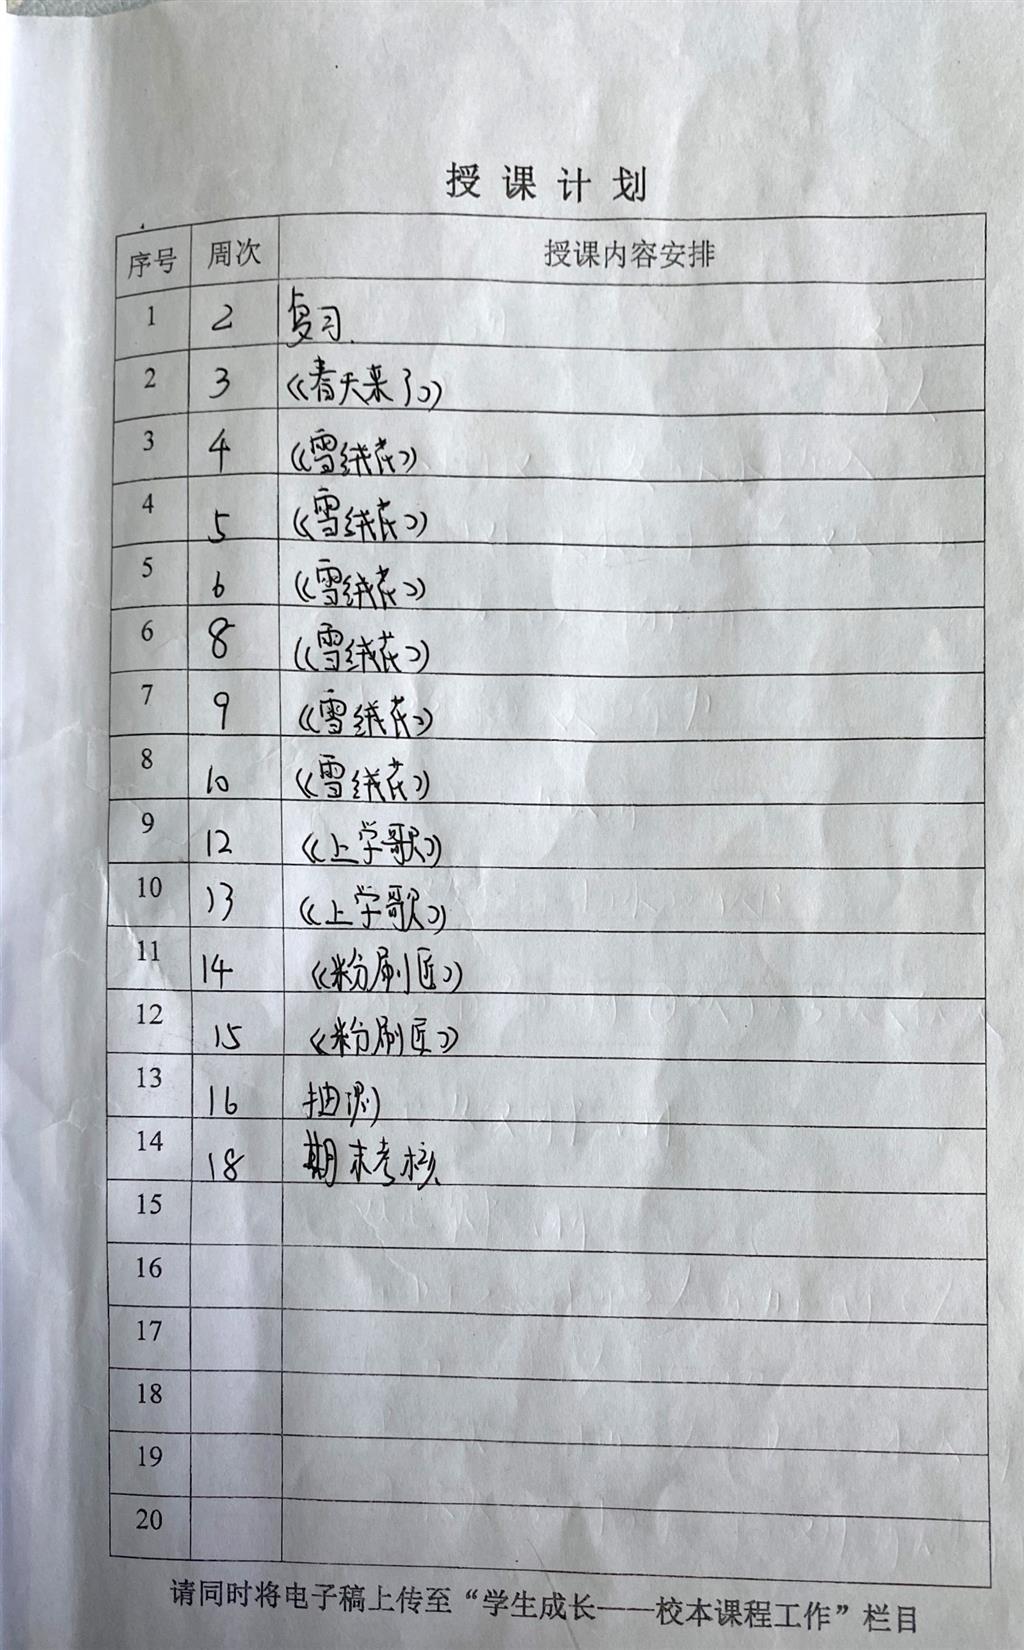 授课计划
序号 周次 授课内容安排
1 2 复习.
2 3 《春天来了》
3 4 《雪绒花》
4 5 《雪绒花》
5 6 《雪绒花》
6 8 《雪绒花》
7 9 《雪绒花》
8 10 《雪绒花》
9 12 《上学歌》
10 13 《上学歌》
11 14 《粉刷匠》
12 15 《粉刷匠》
13 16 抽测
14 18 期末考核
15
16
17
18
19
20
请同时将电子稿上传至“学生成长——校本课程工作”栏目